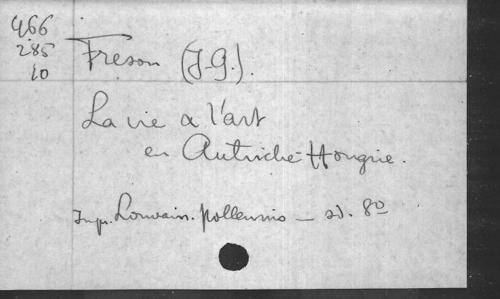 466
285
10
Freson (J.G.).
La vie a l'art
en Autriche-Hongrie.
Impr. Louvain. Polleunis — sd. 8º